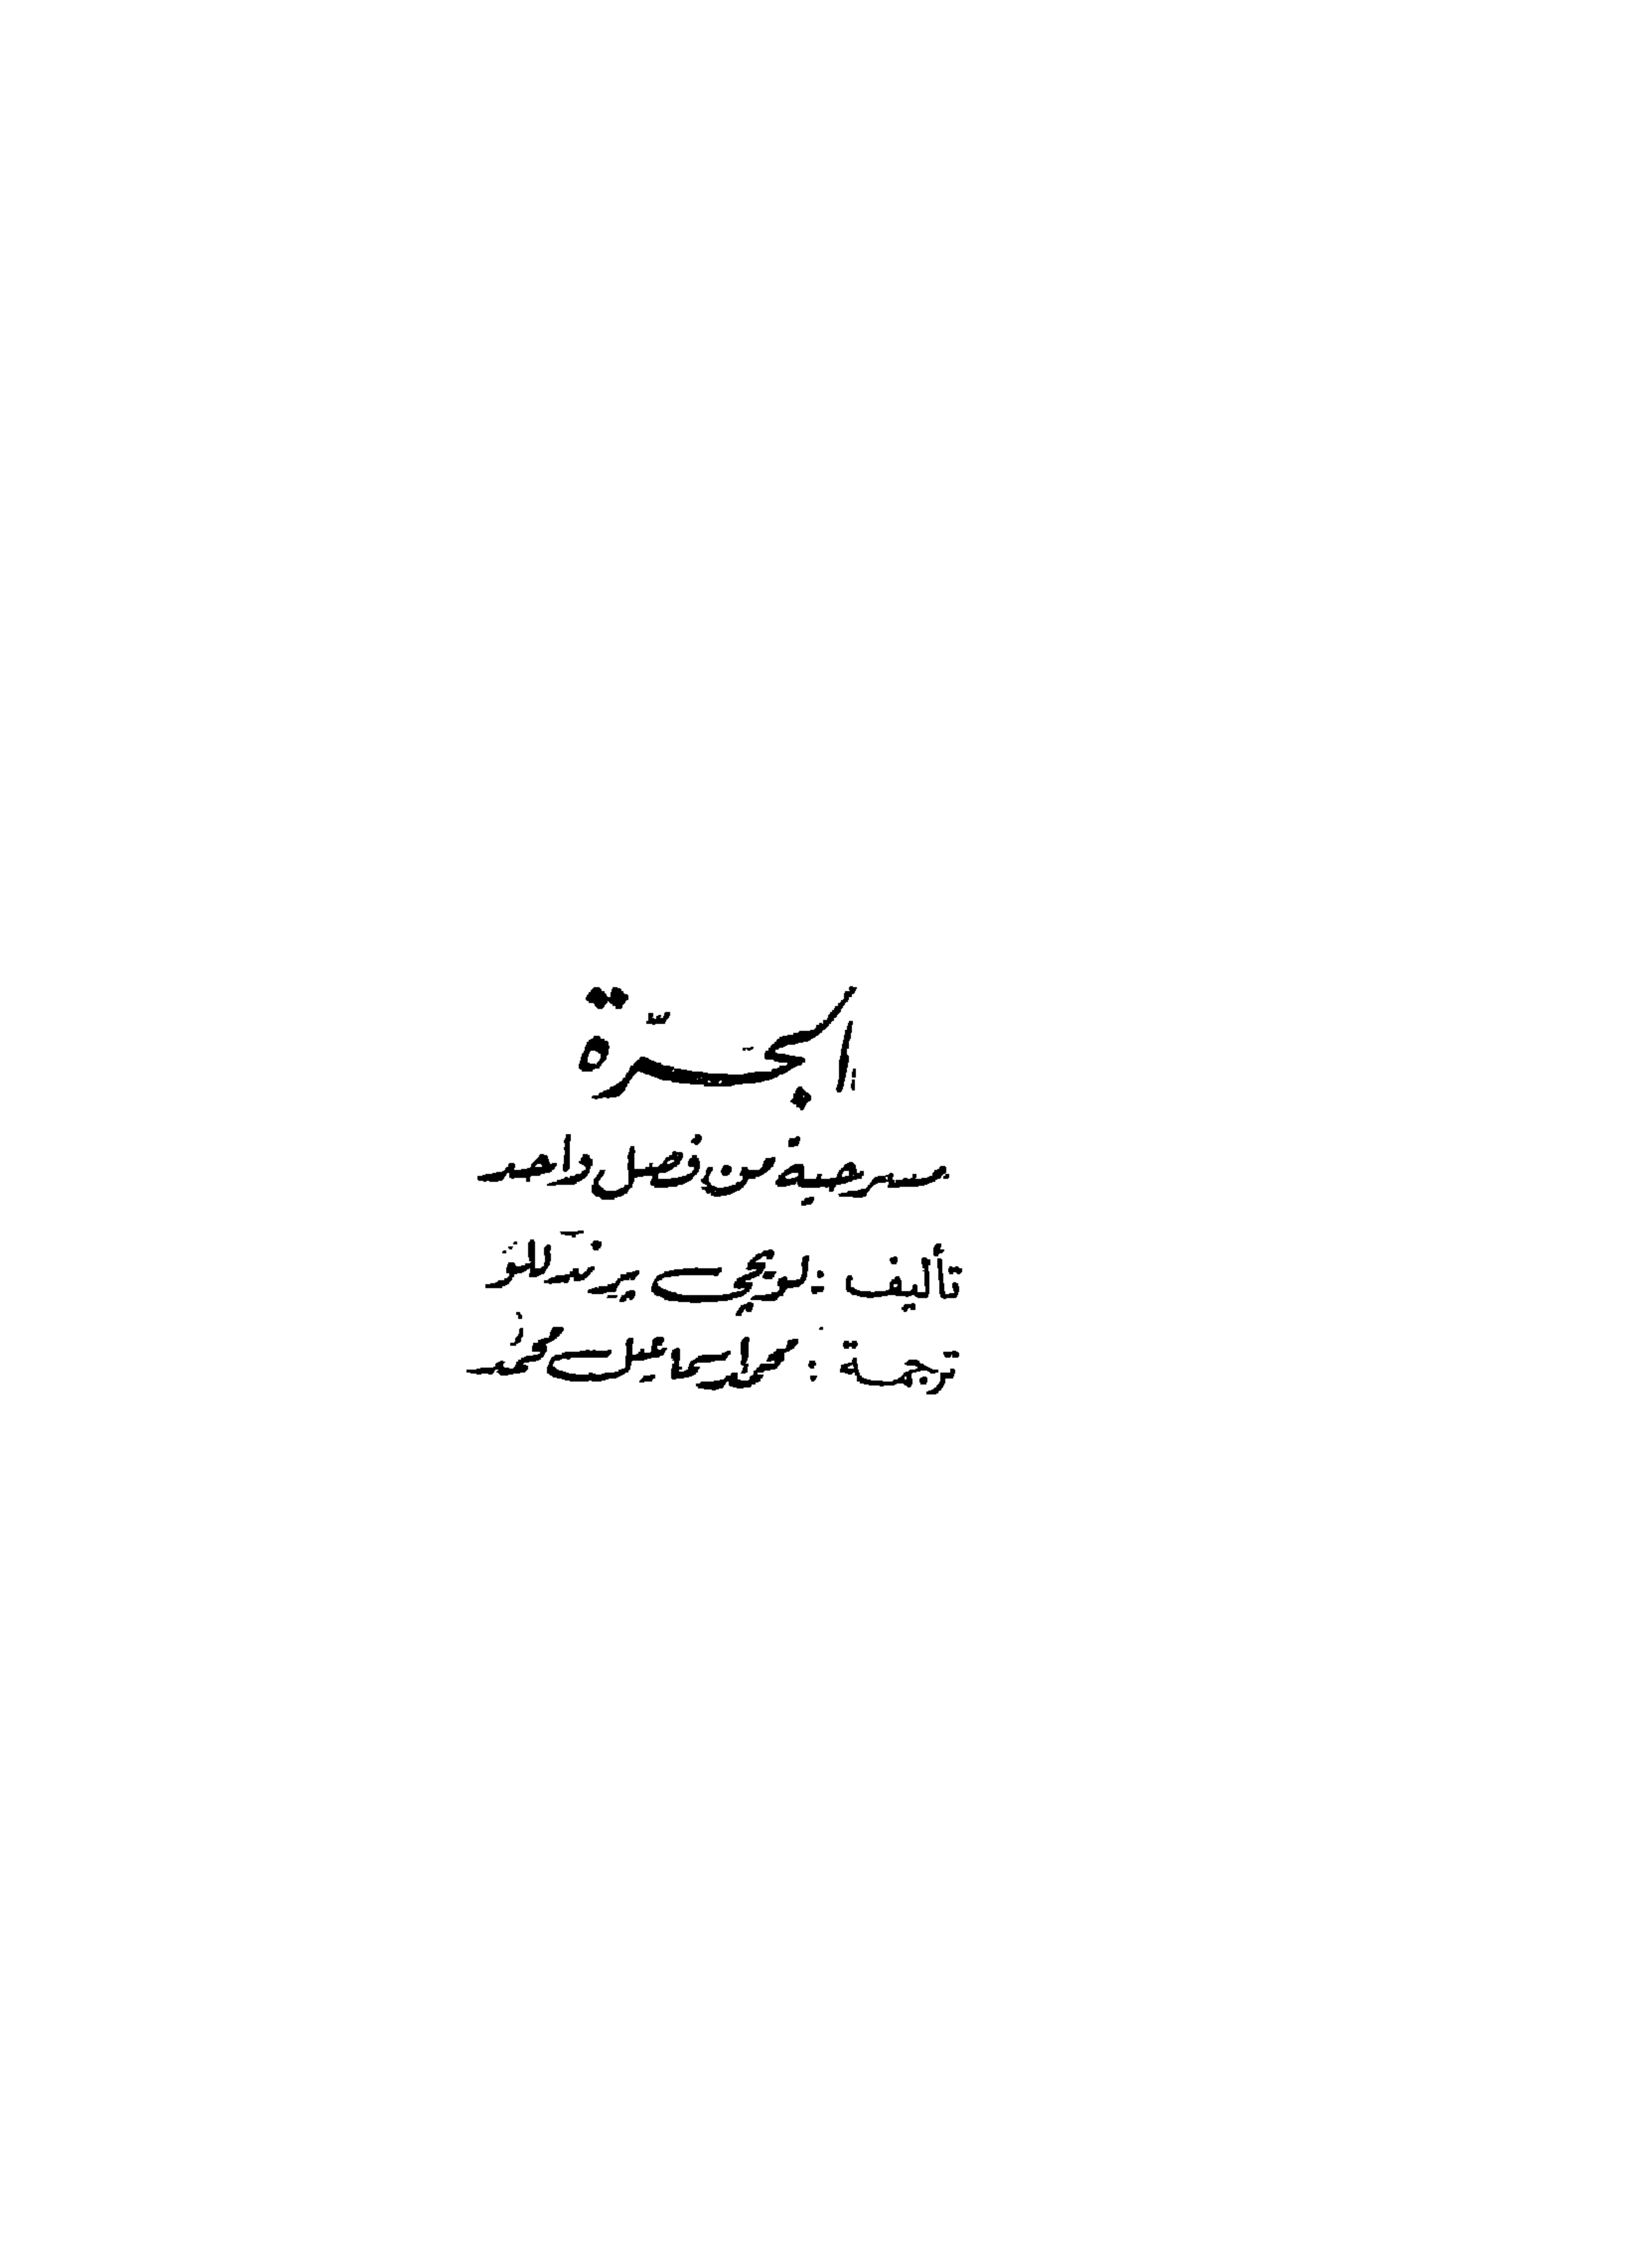 الجَرّة
مسرحية من فصل واحد
تأليف : لويجى بيرندللو
ترجمة : محمد إسماعيل محمد